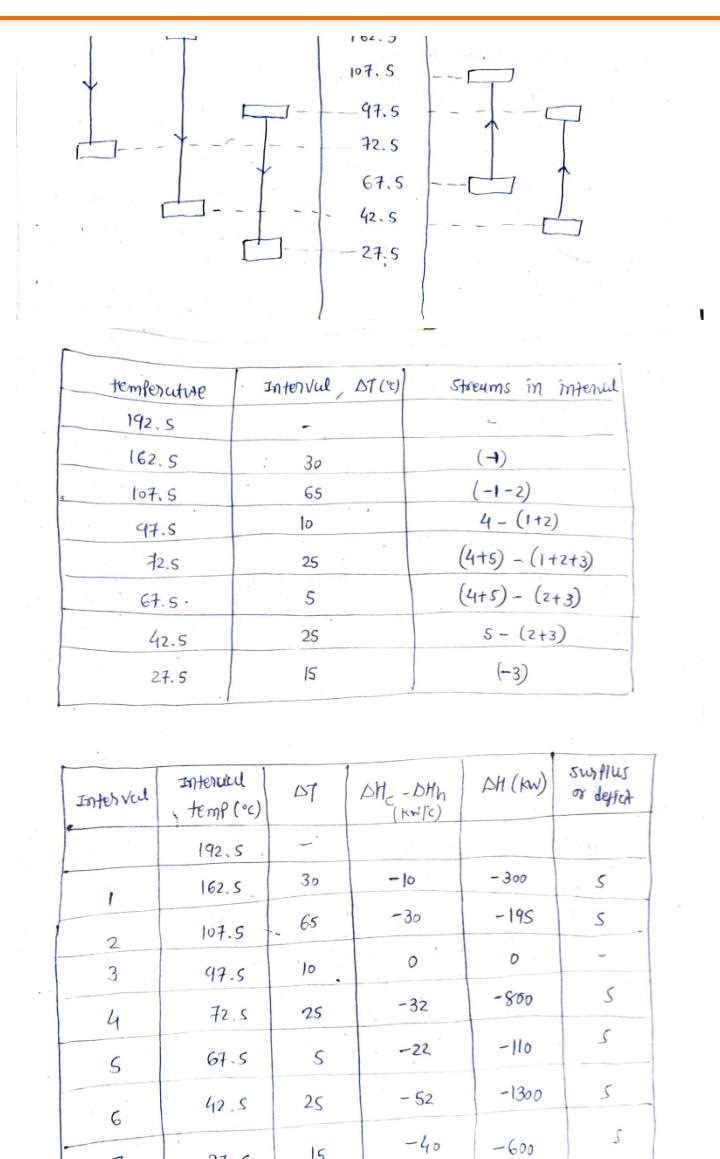 162.5
107.5
97.5
72.5
67.5
42.5
27.5
temperature | Interval, ΔT (℃) | Streams in interval
192.5 | - | -
162.5 | 30 | (-1)
107.5 | 65 | (-1-2)
97.5 | 10 | 4 - (1+2)
72.5 | 25 | (4+5) - (1+2+3)
67.5 | 5 | (4+5) - (2+3)
42.5 | 25 | 5 - (2+3)
27.5 | 15 | (-3)
Interval | Interval temp (°C) | ΔT | ΔHc - ΔHh (KW/C) | ΔH (KW) | Surplus or deficit
192.5 | -
1 | 162.5 | 30 | -10 | -300 | S
2 | 107.5 | 65 | -30 | -195 | S
3 | 97.5 | 10 | 0 | 0 | -
4 | 72.5 | 25 | -32 | -800 | S
5 | 67.5 | 5 | -22 | -110 | S
6 | 42.5 | 25 | -52 | -1300 | S
7 | 27.5 | 15 | -40 | -600 | S